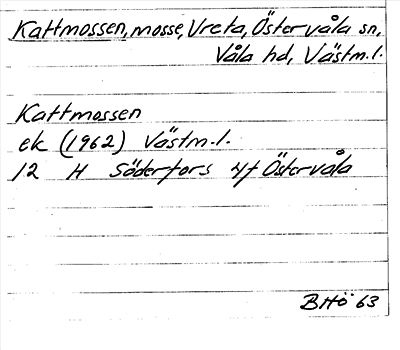 Kattmossen, mosse, Vreta, Östervåla sn,
Våla hd, Västm.l.
Kattmossen
ek (1962) Västm.l.
12 H Söderfors Östervåla
BHö 63